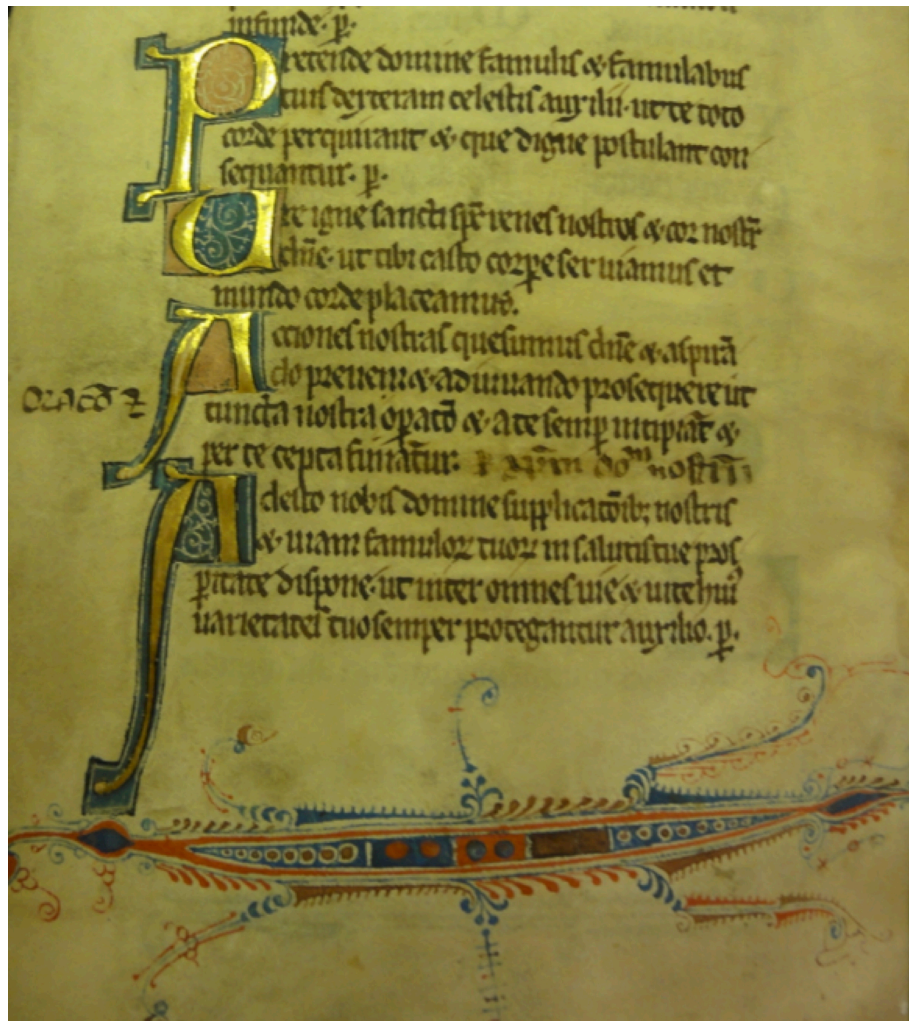 infunde. p̄.
Pretende domine famulis & famulabus
tuis dexteram celestis auxilii. ut te toto
corde perquirant & que digne postulant con
sequantur. p̄.
Ure igne sancti sp̄c renes nostros & cor nostr̄
dn̄e. ut tibi casto corpe ser uiamus et
mundo corde placeamus.
Acciones nostras quesumus dn̄e & aspirā
do preueni & adiuuando prosequere ut
cuncta nostra op̄atō & a te semp̄ incipiat̄ &
per te cepta finiat̄ur. nostrū
oracō
Adesto nobis domine supplicatōib; nostris
& uiam famuloꝝ tuoꝝ in salutis tue pros
p̄itate dispone. ut inter omnes uie & uite huiꝰ
uarietates tuo semper protegantur auxilio. p̄.